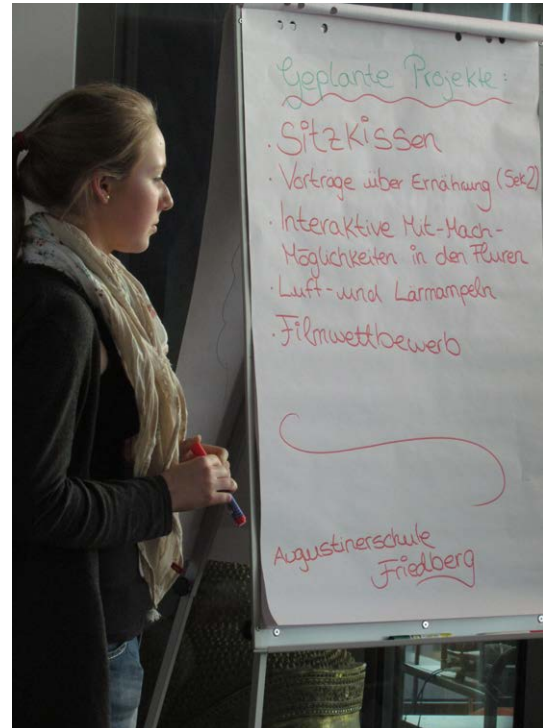 Geplante Projekte:
· Sitzkissen
· Vorträge über Ernährung (Sek2)
· Interaktive Mit-Mach-
Möglichkeiten in den Fluren
· Luft- und Lärmampeln
· Filmwettbewerb
Augustinerschule
Friedberg